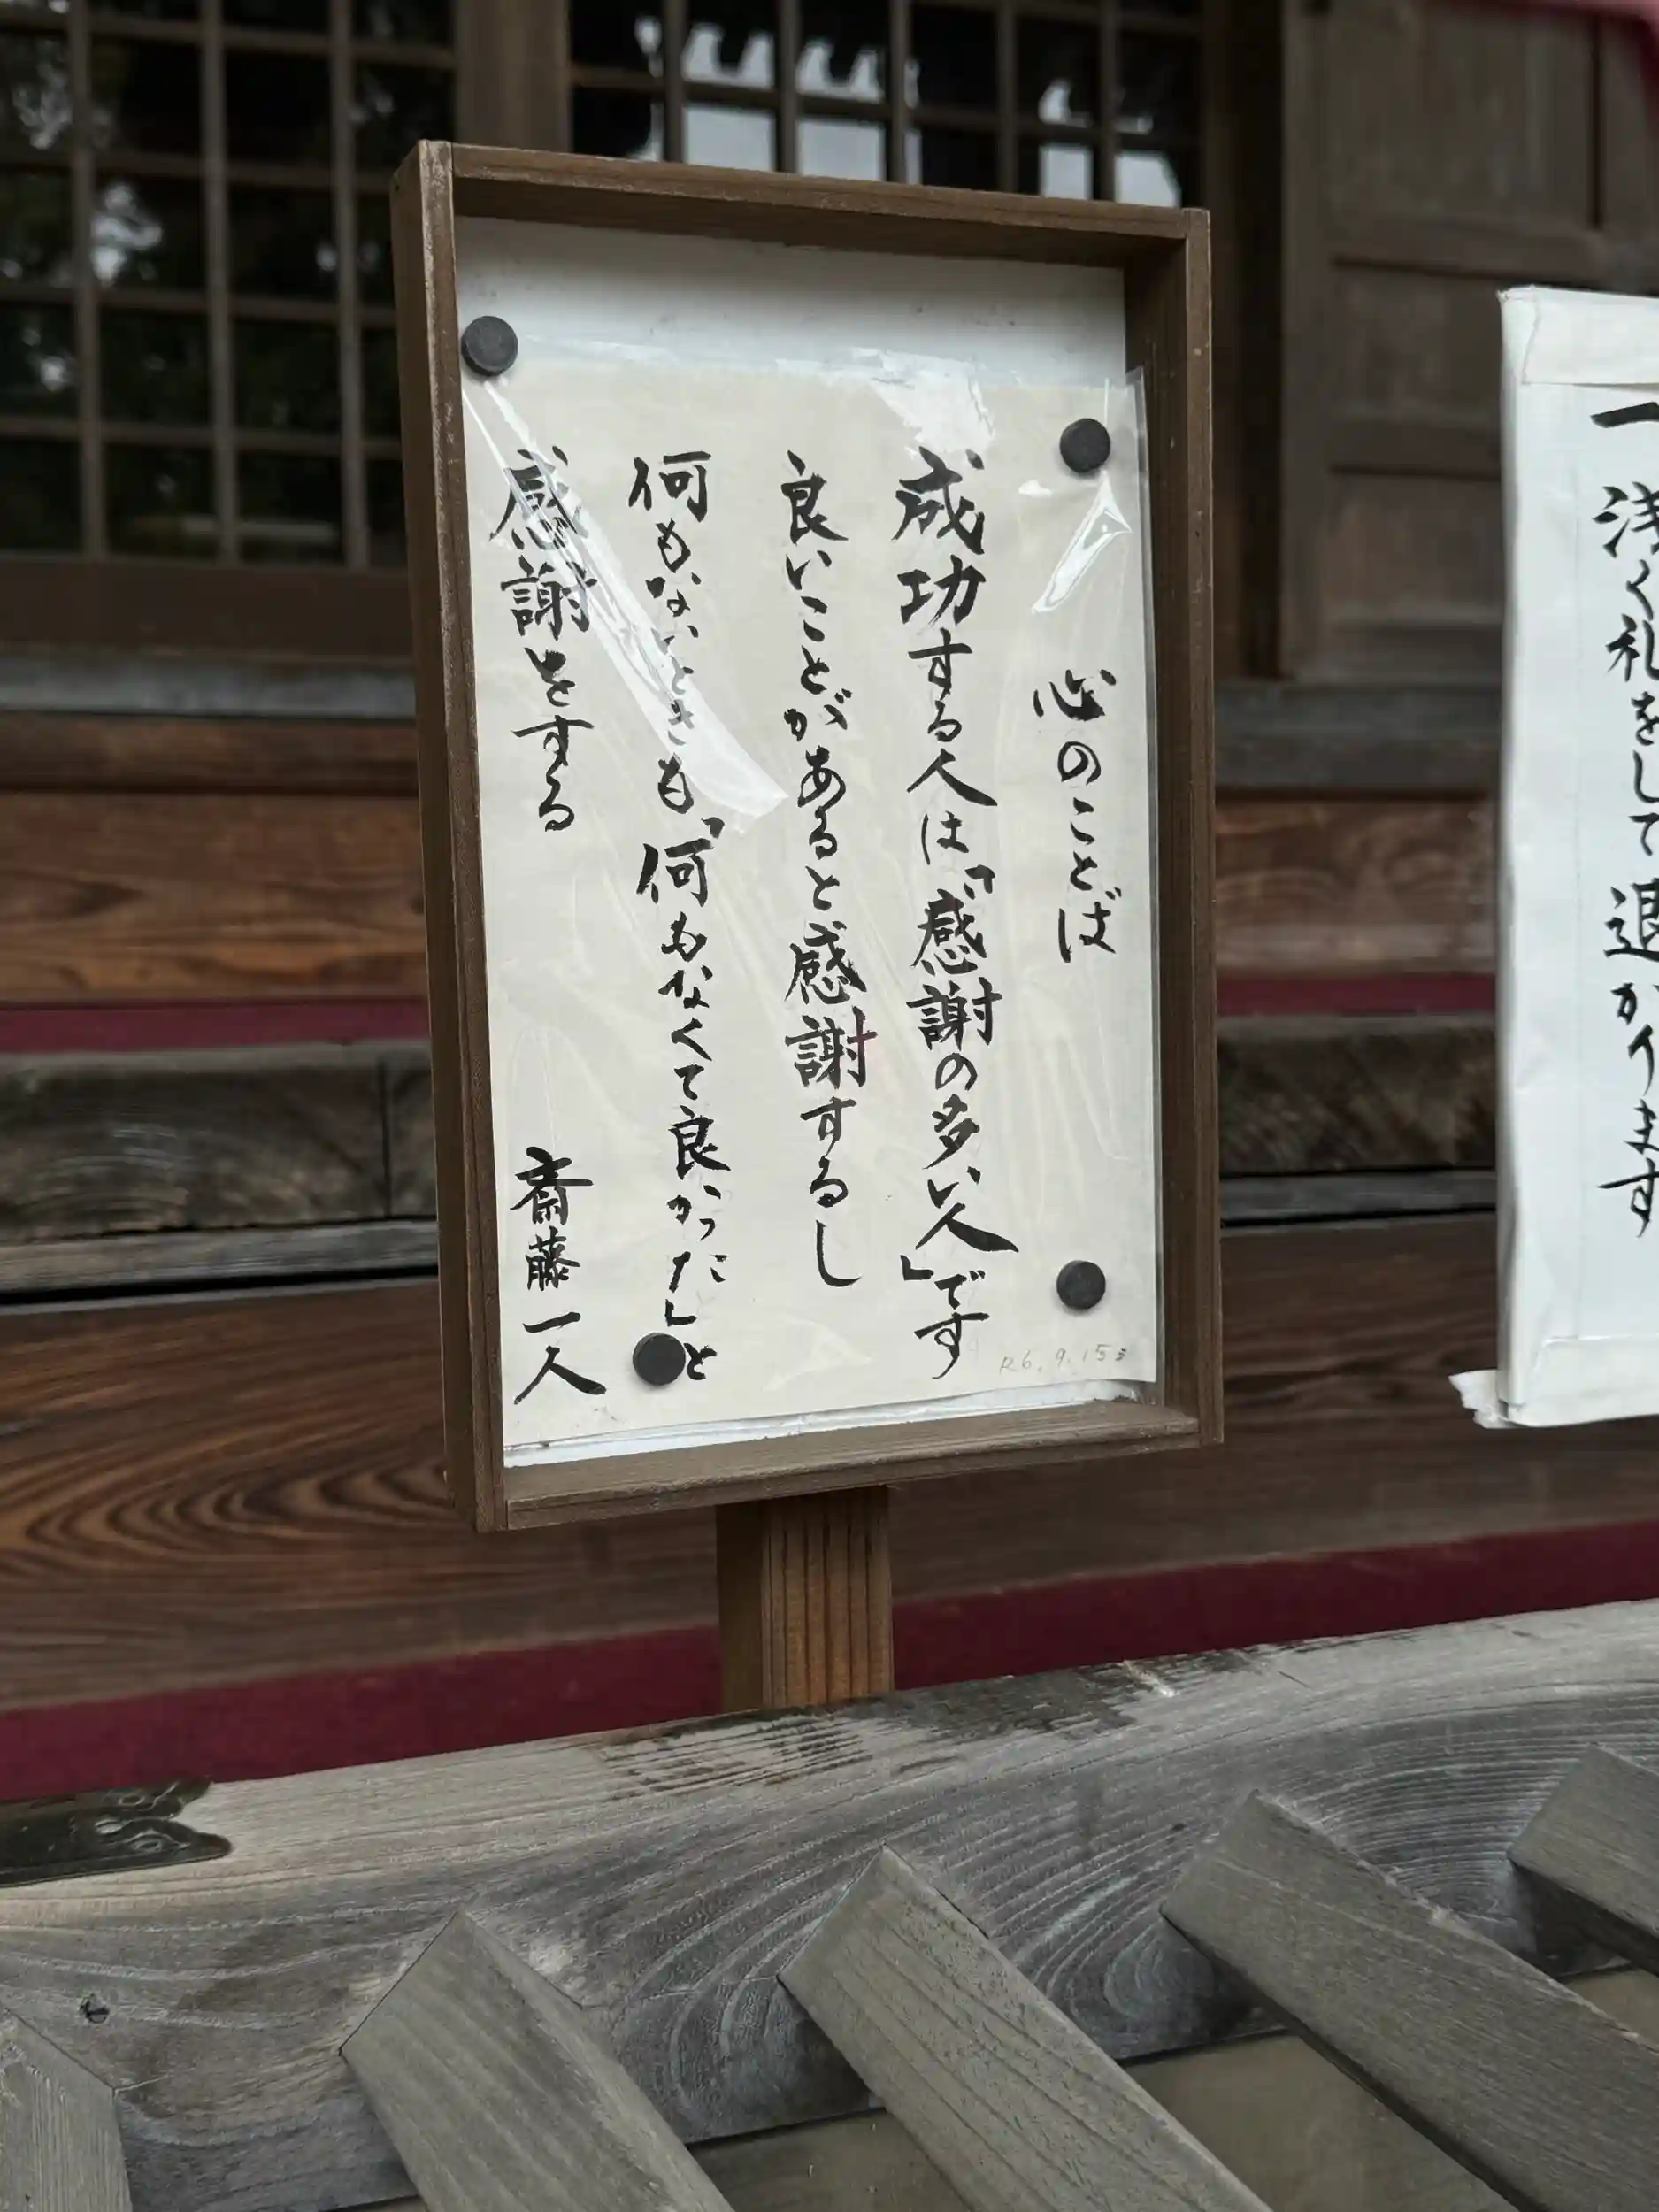 心のことば
成功する人は「感謝の多い人」です
良いことがあると感謝するし
何もないときも「何もなくて良かった」と
感謝をする
斎藤一人
R6.9.15
一 浅く礼をして退がります